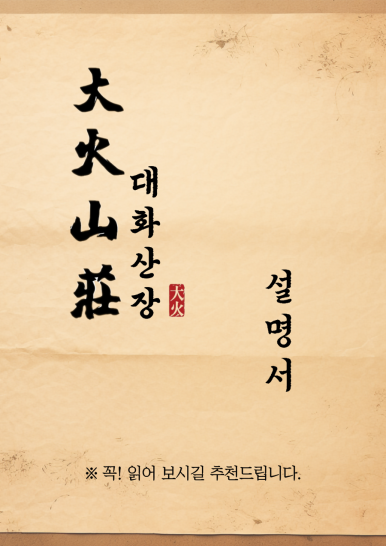 大火山莊
대화산장
大火
설명서
※ 꼭! 읽어 보시길 추천드립니다.